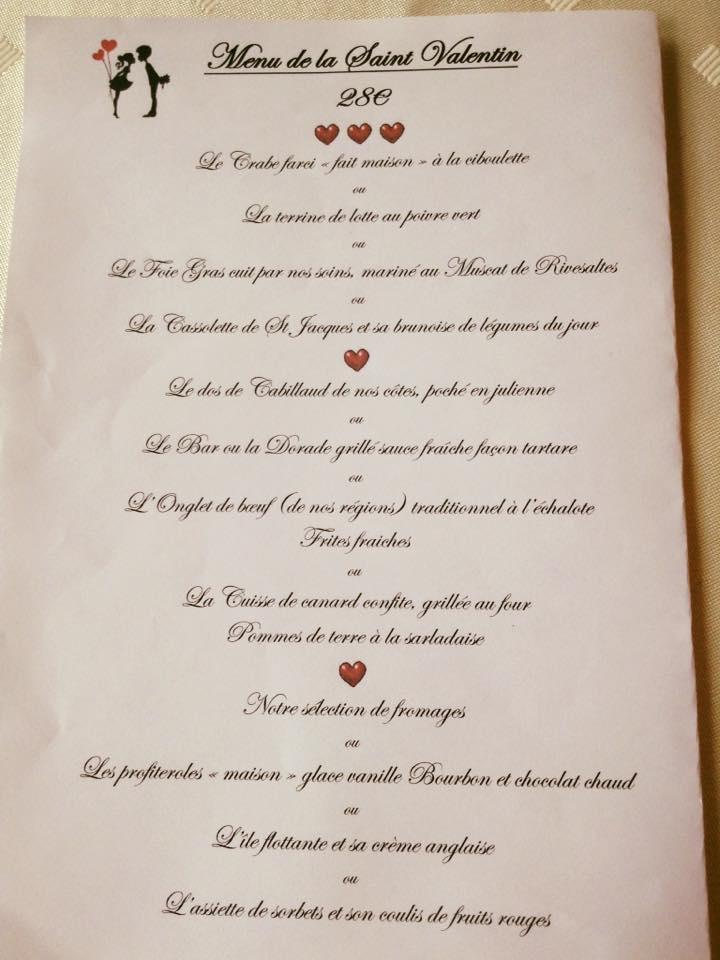 Menu de la Saint Valentin
28€
Le Crabe farci « fait maison » à la ciboulette
ou
La terrine de lotte au poivre vert
ou
Le Foie Gras cuit par nos soins, mariné au Muscat de Rivesaltes
ou
La Cassolette de St Jacques et sa brunoise de légumes du jour
Le dos de Cabillaud de nos côtes, poché en julienne
ou
Le Bar ou la Dorade grillé sauce fraîche façon tartare
ou
L'Onglet de bœuf (de nos régions) traditionnel à l'échalote
Frites fraiches
ou
La Cuisse de canard confite, grillée au four
Pommes de terre à la sarladaise
Notre sélection de fromages
ou
Les profiteroles « maison » glace vanille Bourbon et chocolat chaud
ou
L'île flottante et sa crème anglaise
ou
L'assiette de sorbets et son coulis de fruits rouges